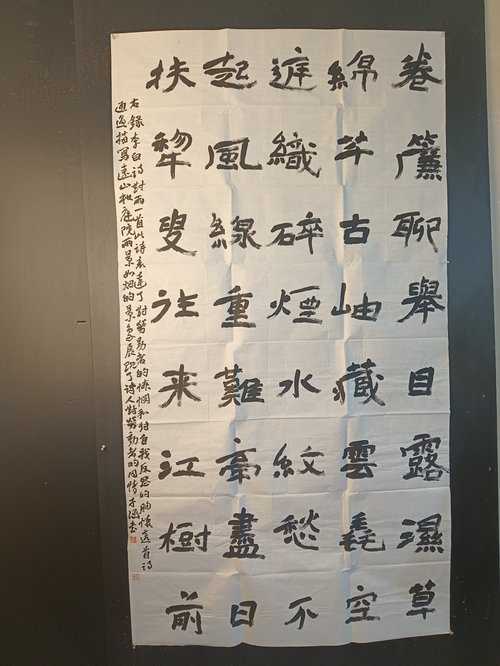 卷簾聊舉目露濕草
綿芊古岫藏雲毳空
庭織碎煙水紋愁不
起風線重難牽盡日
扶犁叟往来江樹前
右錄李白诗對雨一首此诗表達了對勞動者的憐憫和對自我反思的胸懷這首诗
通過描寫遠山和庭院雨景如烟的景色展現了诗人對勞動者的同情